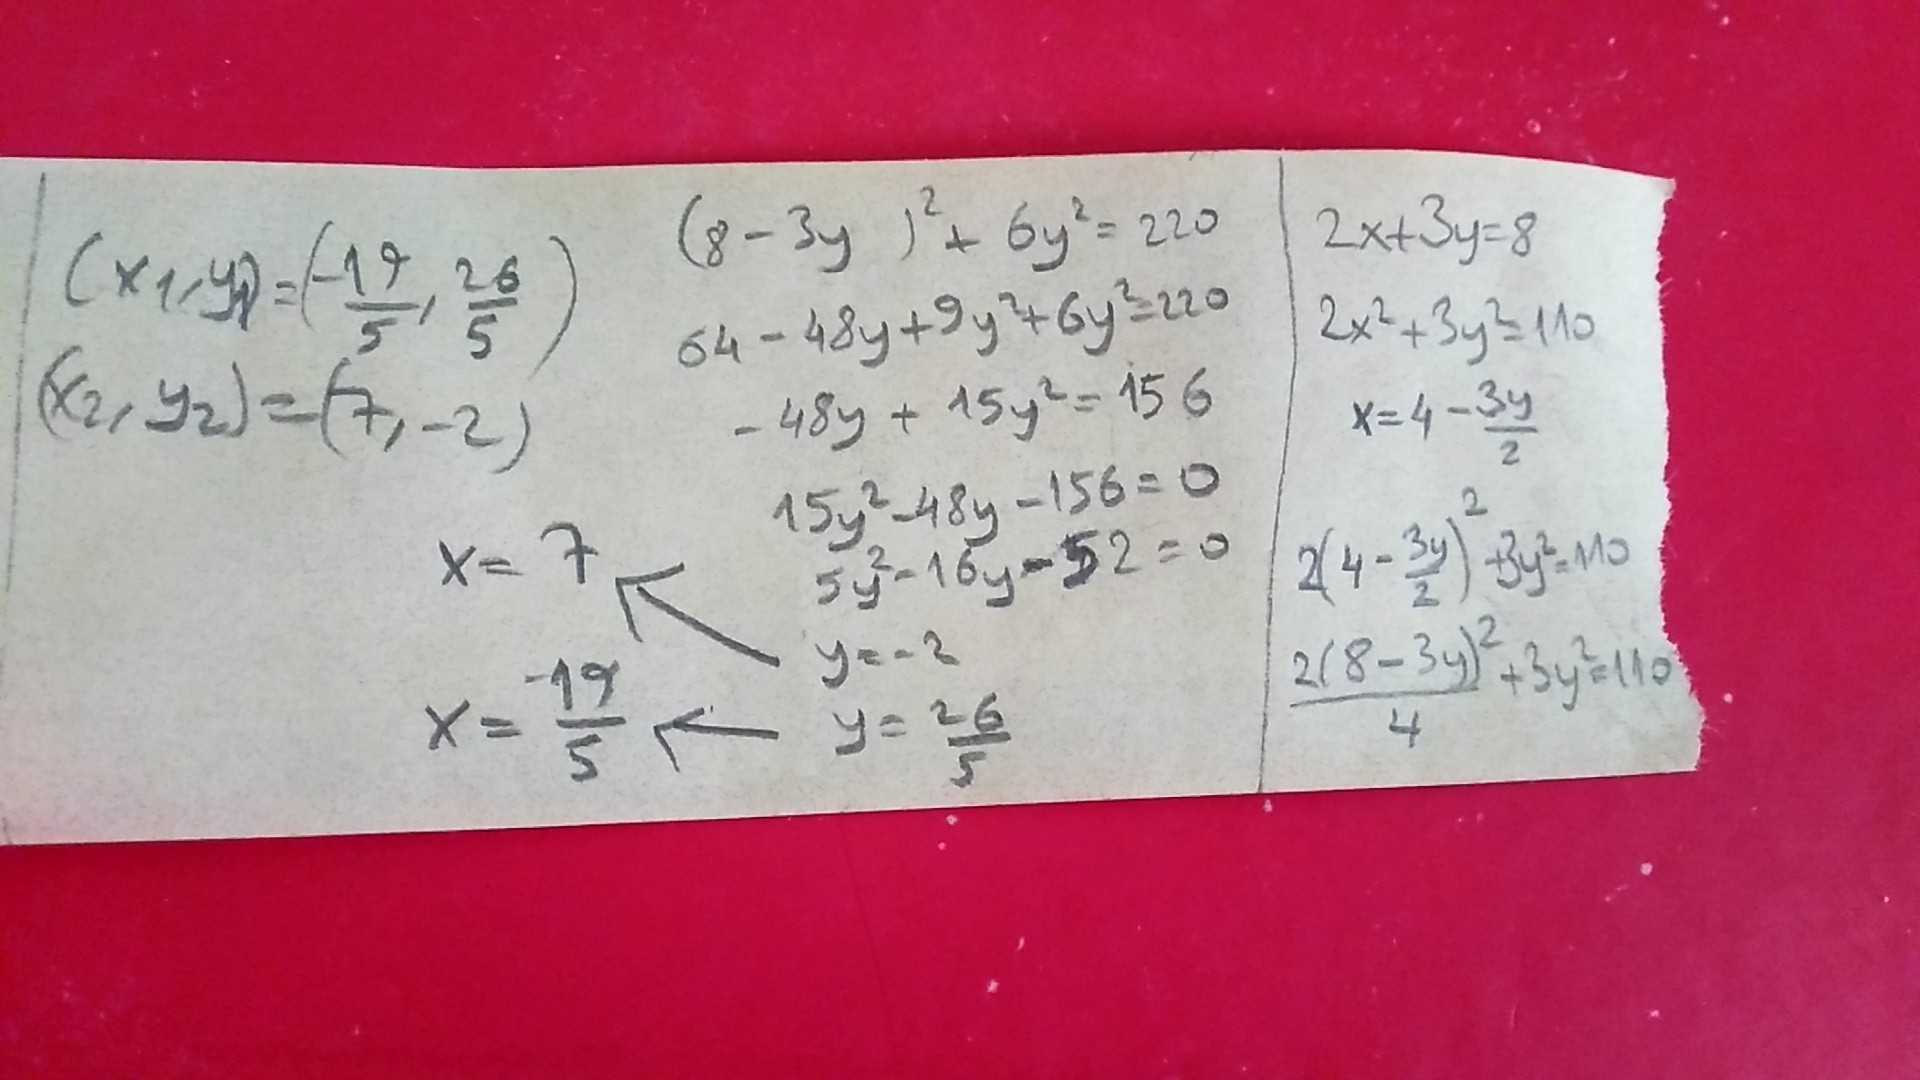 2x+3y=8
2x²+3y²=110
x=4-3y/2
2(4-3y/2)²+3y²=110
2(8-3y)²/4+3y²=110
(8-3y )²+6y²=220
64-48y+9y²+6y²=220
-48y+15y²=156
15y²-48y-156=0
5y²-16y-52=0
y=-2
y=26/5
x=7
x=-19/5
(x1,y1)=(-19/5,26/5)
(x2,y2)=(7,-2)